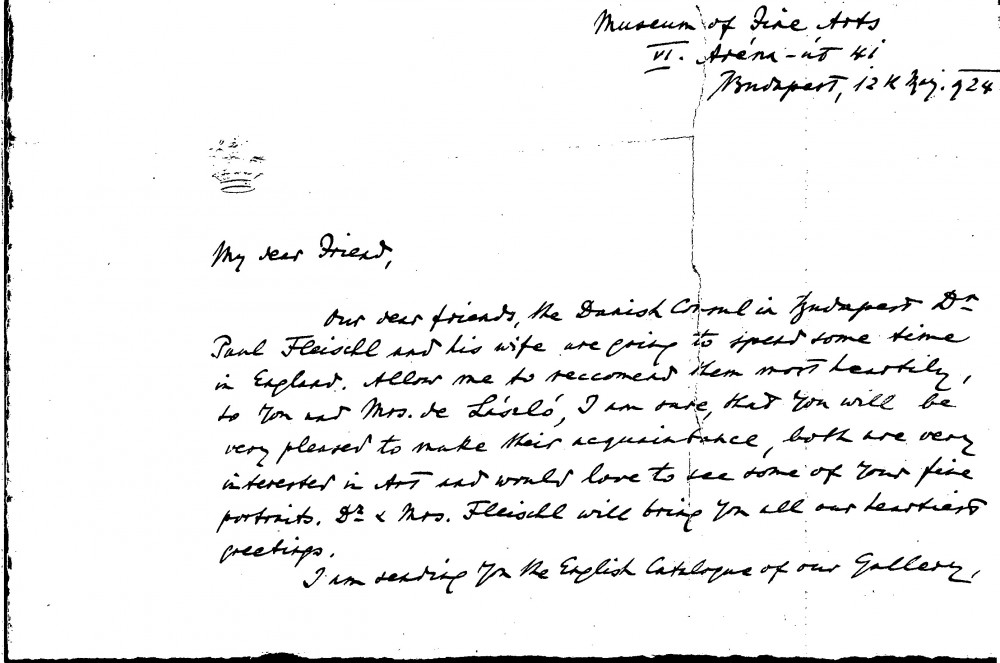 Museum of Fine Arts
VI. Aréna-út 41
Budapest, 12th May. 924
My dear Friend,
Our dear friends, the Danish Consul in Budapest Dr
Paul Fleischl and his wife are going to spend some time
in England. Allow me to reccomend them most heartily,
to You and Mrs. de László, I am sure, that You will be
very pleased to make their acquaintance, both are very
interested in Art and would love to see some of Your fine
portraits. Dr & Mrs. Fleischl will bring You all our heartiest
greetings.
I am sending You the English Catalogue of our Gallery,